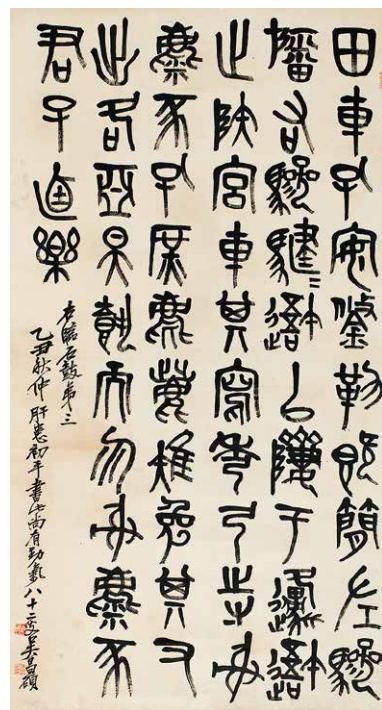 田車孔安鋚勒既簡左驂
旛右驂騝=避以隮于邍避
止陜宮車其寫秀弓寺射
麋豕孔庶麀鹿雉兔其又
出各亞昊執而勿射麋豕
君子逌樂
右臨石鼓第三
乙丑秋仲肝恙初平書此尚有勁氣八十二叟吳昌碩